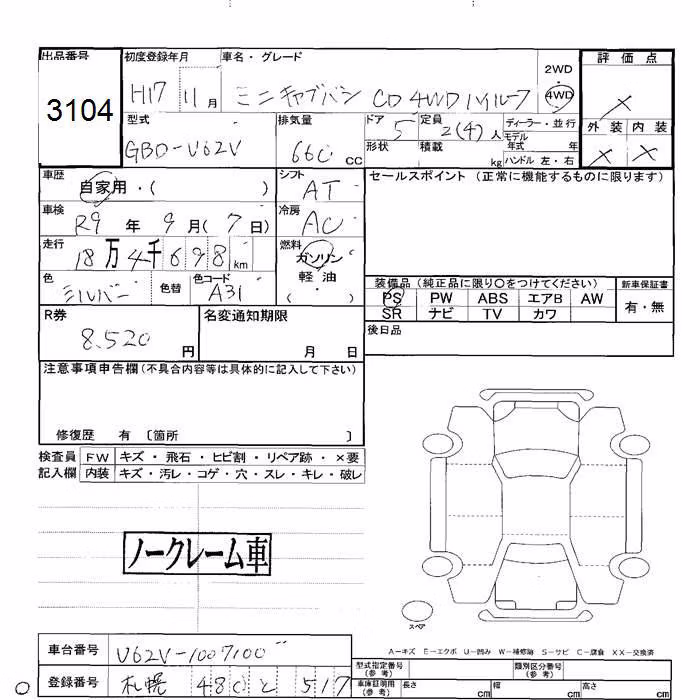 出品番号 初度登録年月 車名・グレード 2WD 4WD 評価点
3104 H17 11月 ミニキャブバン CD 4WD ハイルーフ ×
型式 排気量 ドア 定員 ディーラー・並行 外装 内装
GBD-U62V 660 cc 5 2(4)人 モデル年式 年 × ×
形状 積載 kg ハンドル 左・右
車歴 自家用・( ) シフト AT セールスポイント (正常に機能するものに限ります)
車検 R9年 9月(7日) 冷房 AC
走行 18万4千698km 燃料 ガソリン・軽油 ( )
色 シルバー 色替 色コード A31 装備品 (純正品に限り〇をつけてください) 新車保証書
PS PW ABS エアB AW 有・無
SR ナビ TV カワ
R券 8,520円 名変通知期限 月 日 後日品
注意事項申告欄(不具合内容等は具体的に記入して下さい)
修復歴 有 〔箇所 〕
検査員 FW キズ・飛石・ヒビ割・リペア跡・×要
記入欄 内装 キズ・汚レ・コゲ・穴・スレ・キレ・破レ
ノークレーム車
スペア
A-キズ E-エクボ U-凹み W-補修跡 S-サビ C-腐食 XX-交換済
車台番号 U62V-1007100
型式指定番号(参考) 類別区分番号(参考)
登録番号 札幌 480 と 517
車庫証明用(参考) 長さ cm 幅 cm 高さ cm